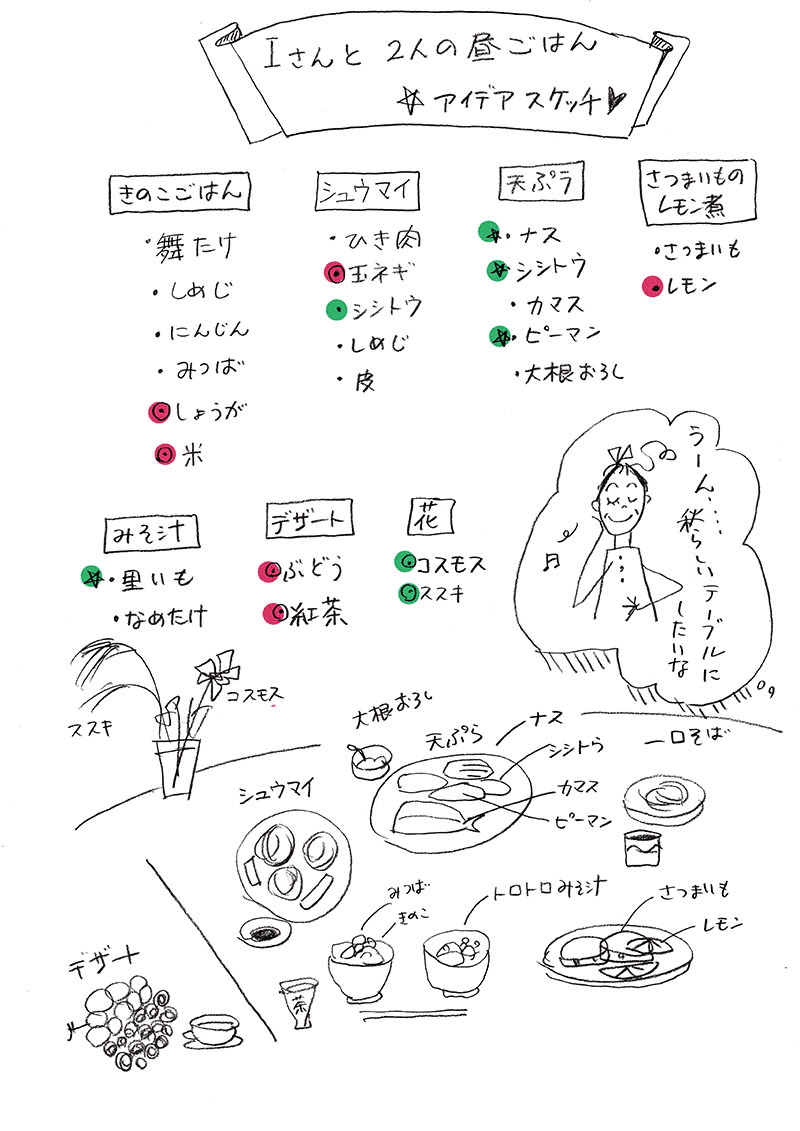 Iさんと 2人の昼ごはん
☆ アイデアスケッチ♥
きのこごはん
・舞たけ
・しめじ
・にんじん
・みつば
・しょうが
・米
シュウマイ
・ひき肉
・玉ネギ
・シシトウ
・しめじ
・皮
天ぷら
☆・ナス
☆・シシトウ
・カマス
☆・ピーマン
・大根おろし
さつまいもの
レモン煮
・さつまいも
・レモン
みそ汁
☆・里いも
・なめたけ
デザート
◎ぶどう
◎紅茶
花
◎コスモス
◎ススキ
うーん、・・・・
秋らしいテーブルに
したいな
ススキ
コスモス
大根おろし
天ぷら
ナス
シシトウ
カマス
ピーマン
一口そば
シュウマイ
みつば
きのこ
トロトロみそ汁
さつまいも
レモン
茶
デザート